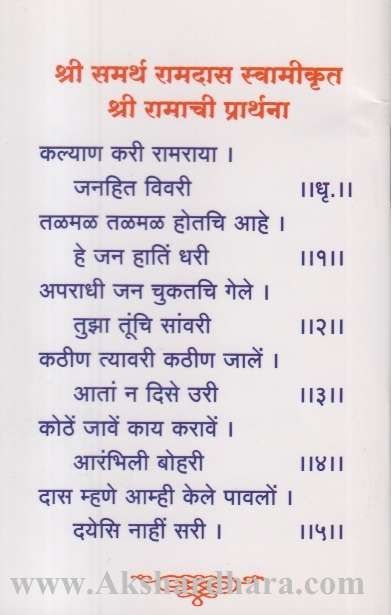 श्री समर्थ रामदास स्वामीकृत
श्री रामाची प्रार्थना
कल्याण करी रामराया ।
जनहित विवरी ।।धृ.।।
तळमळ तळमळ होतचि आहे ।
हे जन हातिं धरी ।।१।।
अपराधी जन चुकतचि गेले ।
तुझा तूंचि सांवरी ।।२।।
कठीण त्यावरी कठीण जालें ।
आतां न दिसे उरी ।।३।।
कोठें जावें काय करावें ।
आरंभिली बोहरी ।।४।।
दास म्हणे आम्ही केले पावलों ।
दयेसि नाहीं सरी । ।।५।।
www.Akshardhara.com